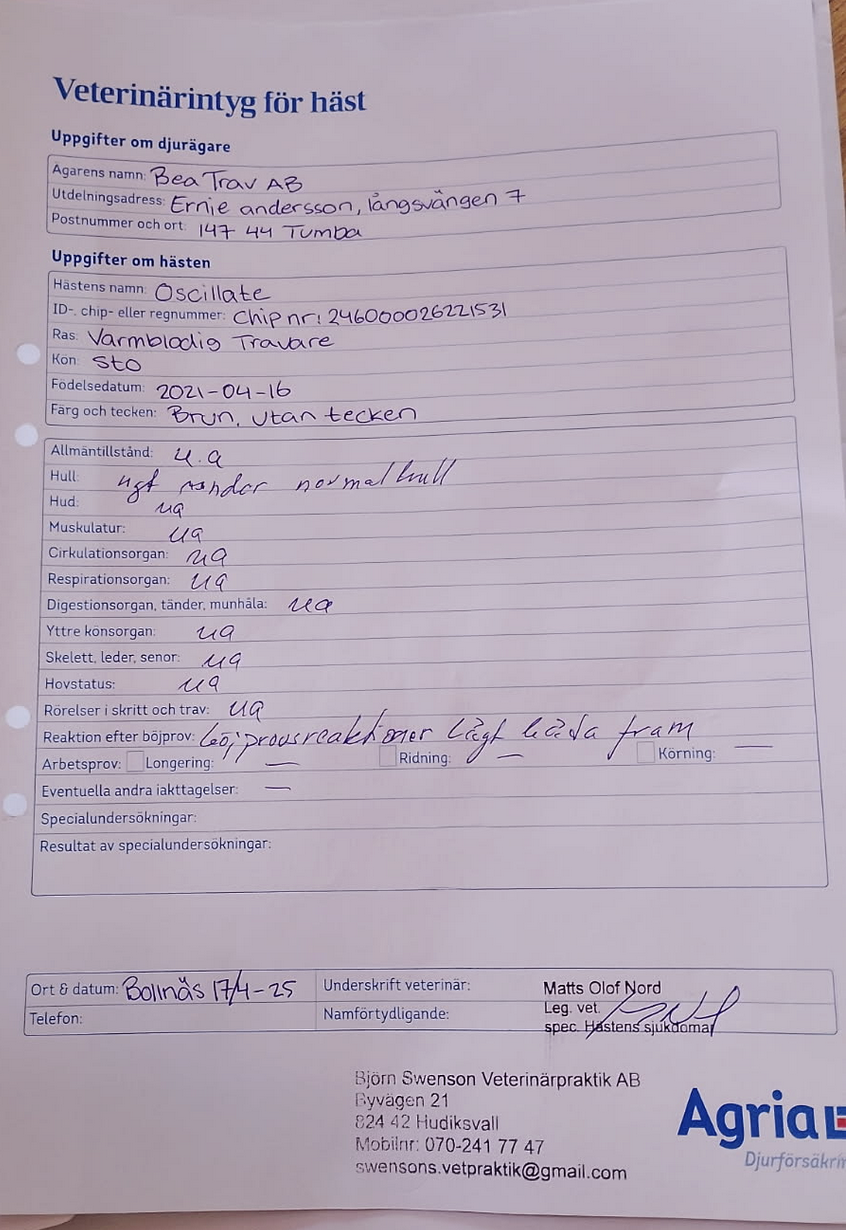 Veterinärintyg för häst
Uppgifter om djurägare
Ägarens namn: Bea Trav AB
Utdelningsadress: Ernie andersson, långsvängen 7
Postnummer och ort: 147 44 Tumba
Uppgifter om hästen
Hästens namn: Oscillate
ID-, chip- eller regnummer: Chip nr: 246000026221531
Ras: Varmblodig Travare
Kön: Sto
Födelsedatum: 2021-04-16
Färg och tecken: Brun, utan tecken
Allmäntillstånd: u.a
Hull: ngt under normalhull
Hud: ua
Muskulatur: ua
Cirkulationsorgan: ua
Respirationsorgan: ua
Digestionsorgan, tänder, munhåla: ua
Yttre könsorgan: ua
Skelett, leder, senor: ua
Hovstatus: ua
Rörelser i skritt och trav: ua
Reaktion efter böjprov: böjprovsreaktioner lågt båda fram
Arbetsprov: Longering: — Ridning: — Körning: —
Eventuella andra iakttagelser: —
Specialundersökningar:
Resultat av specialundersökningar:
Ort & datum: Bollnäs 17/4-25 Underskrift veterinär: Matts Olof Nord
Telefon: Namförtydligande: Leg. vet.
spec. Hästens sjukdomar
Björn Swenson Veterinärpraktik AB
Byvägen 21
824 42 Hudiksvall
Mobilnr: 070-241 77 47
swensons.vetpraktik@gmail.com
Agria
Djurförsäkrin